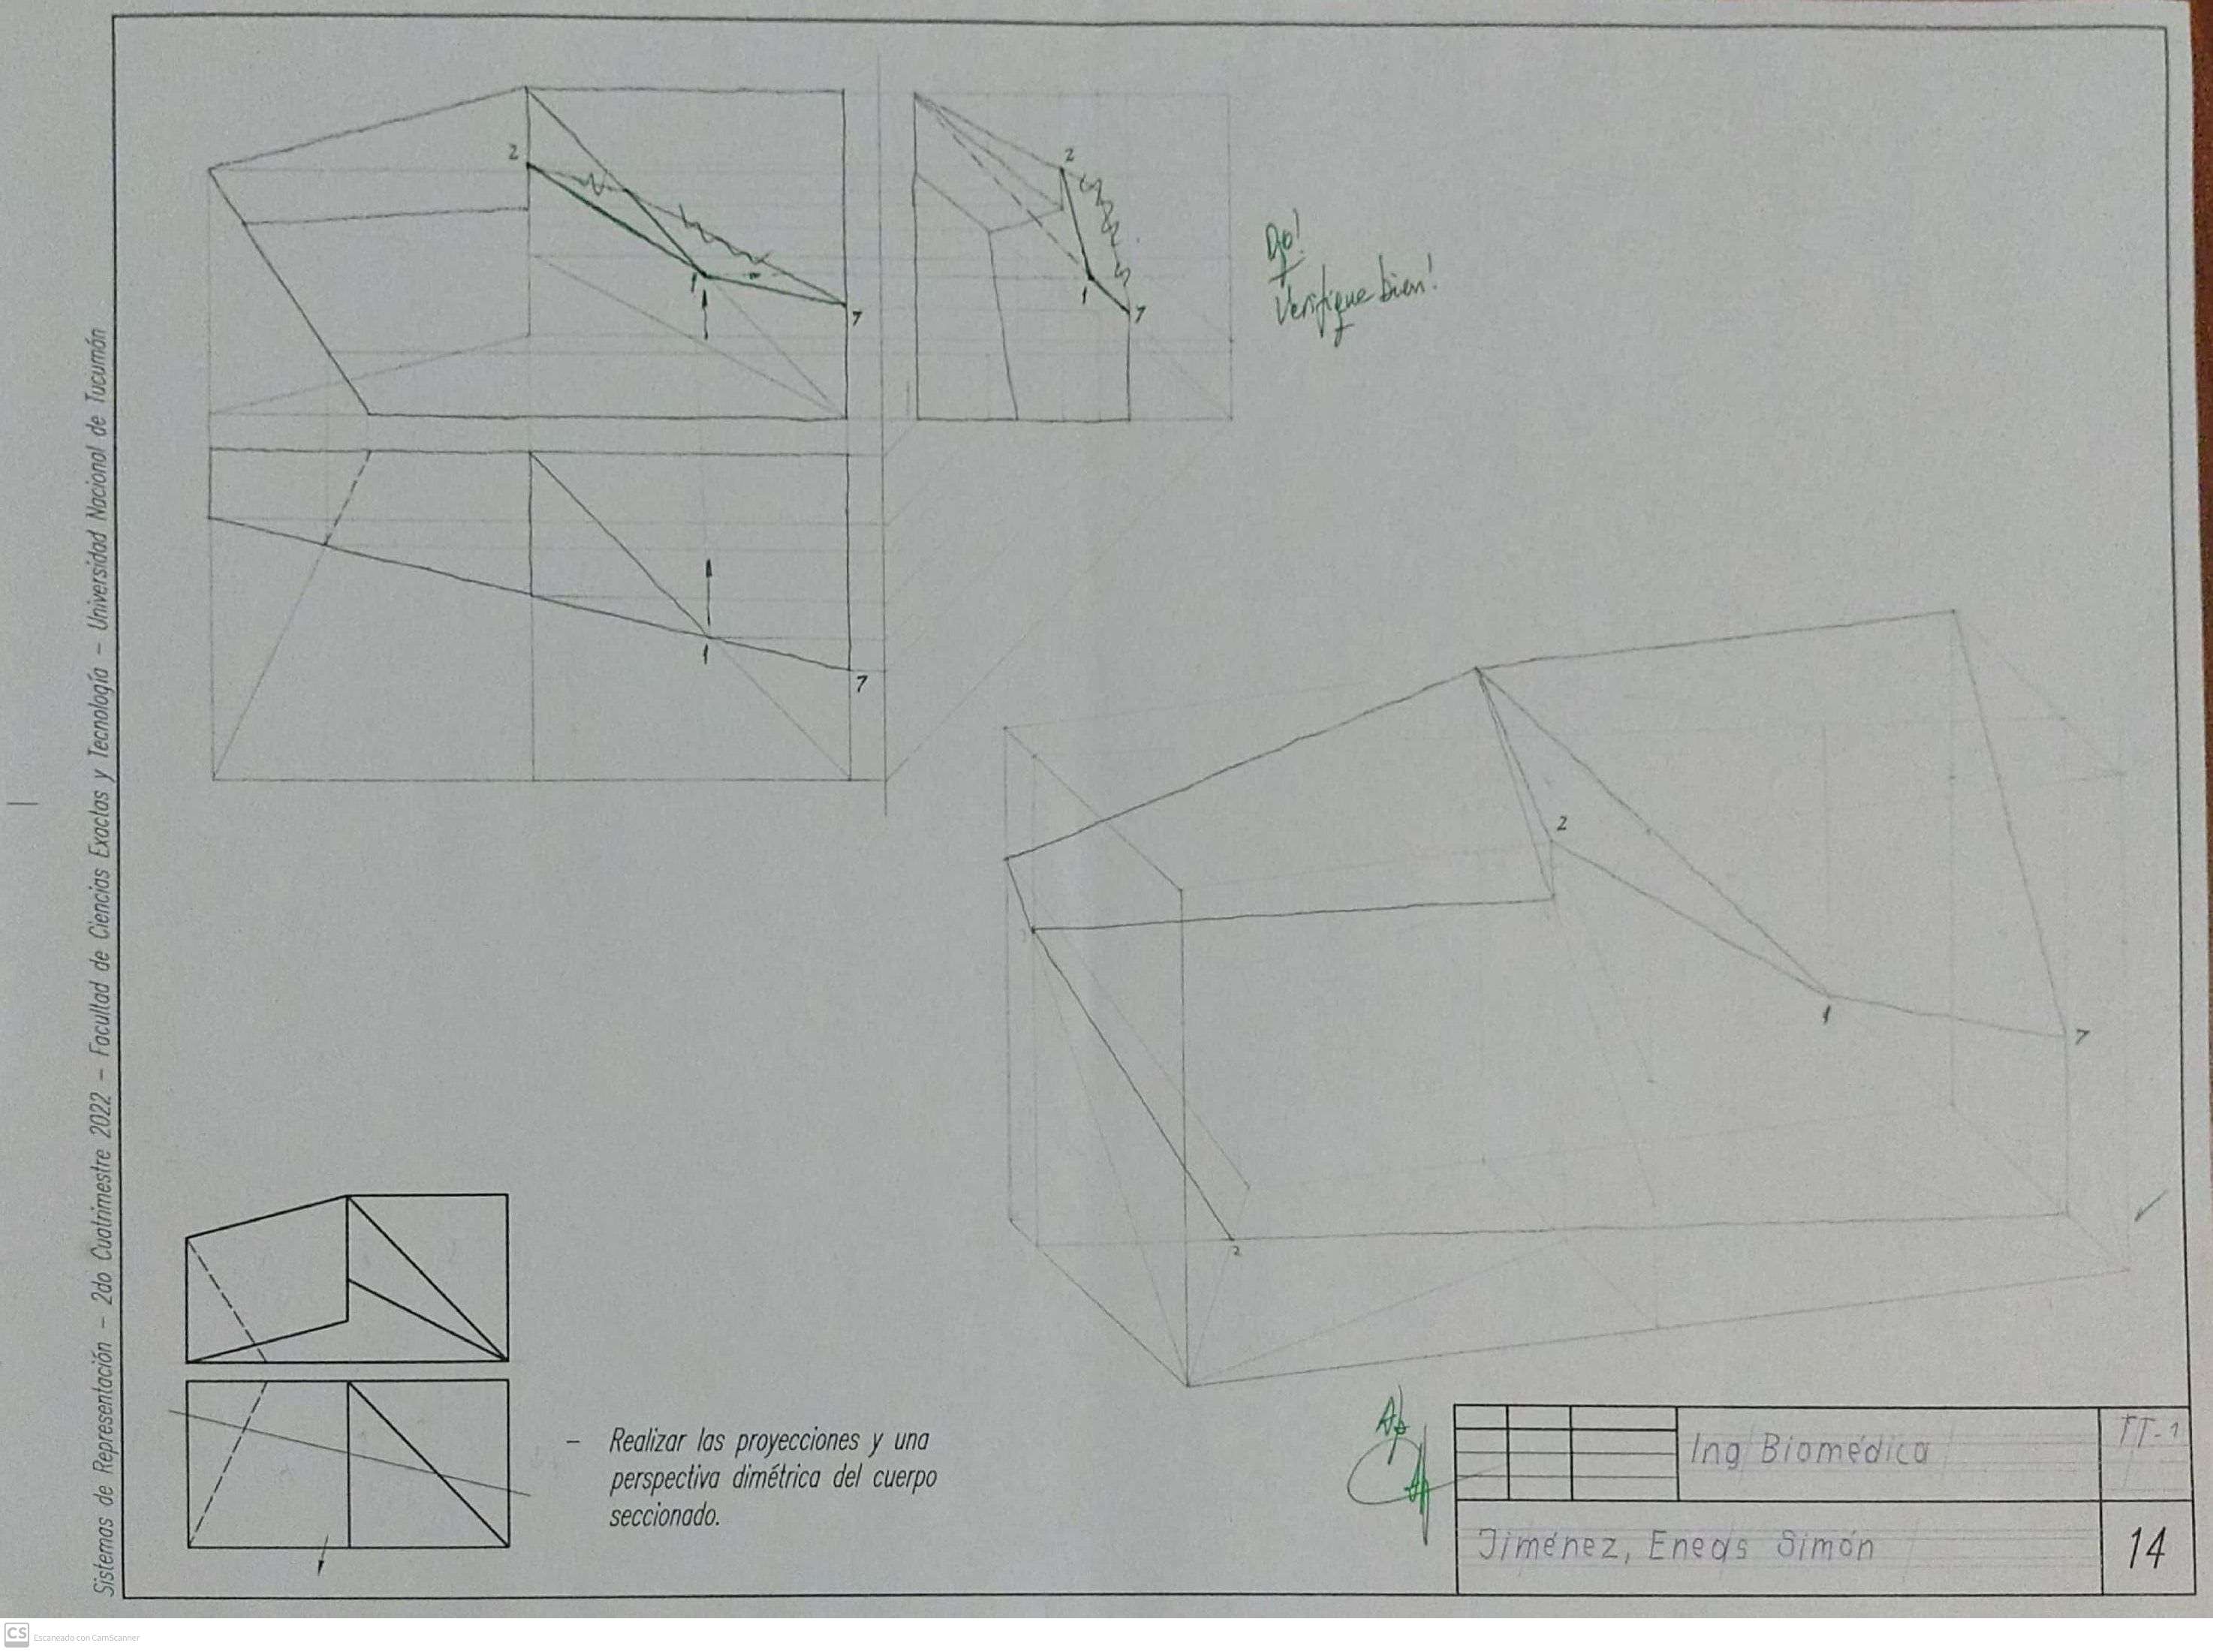 Sistemas de Representación – 2do Cuatrimestre 2022 – Facultad de Ciencias Exactas y Tecnología – Universidad Nacional de Tucumán
2
1
7
2
1
7
Verifique bien!
1
7
2
1
7
2
– Realizar las proyecciones y una
perspectiva dimétrica del cuerpo
seccionado.
Ap
Ing Biomédica
TT-1
Jiménez, Eneas Simón
14
CS Escaneado con CamScanner